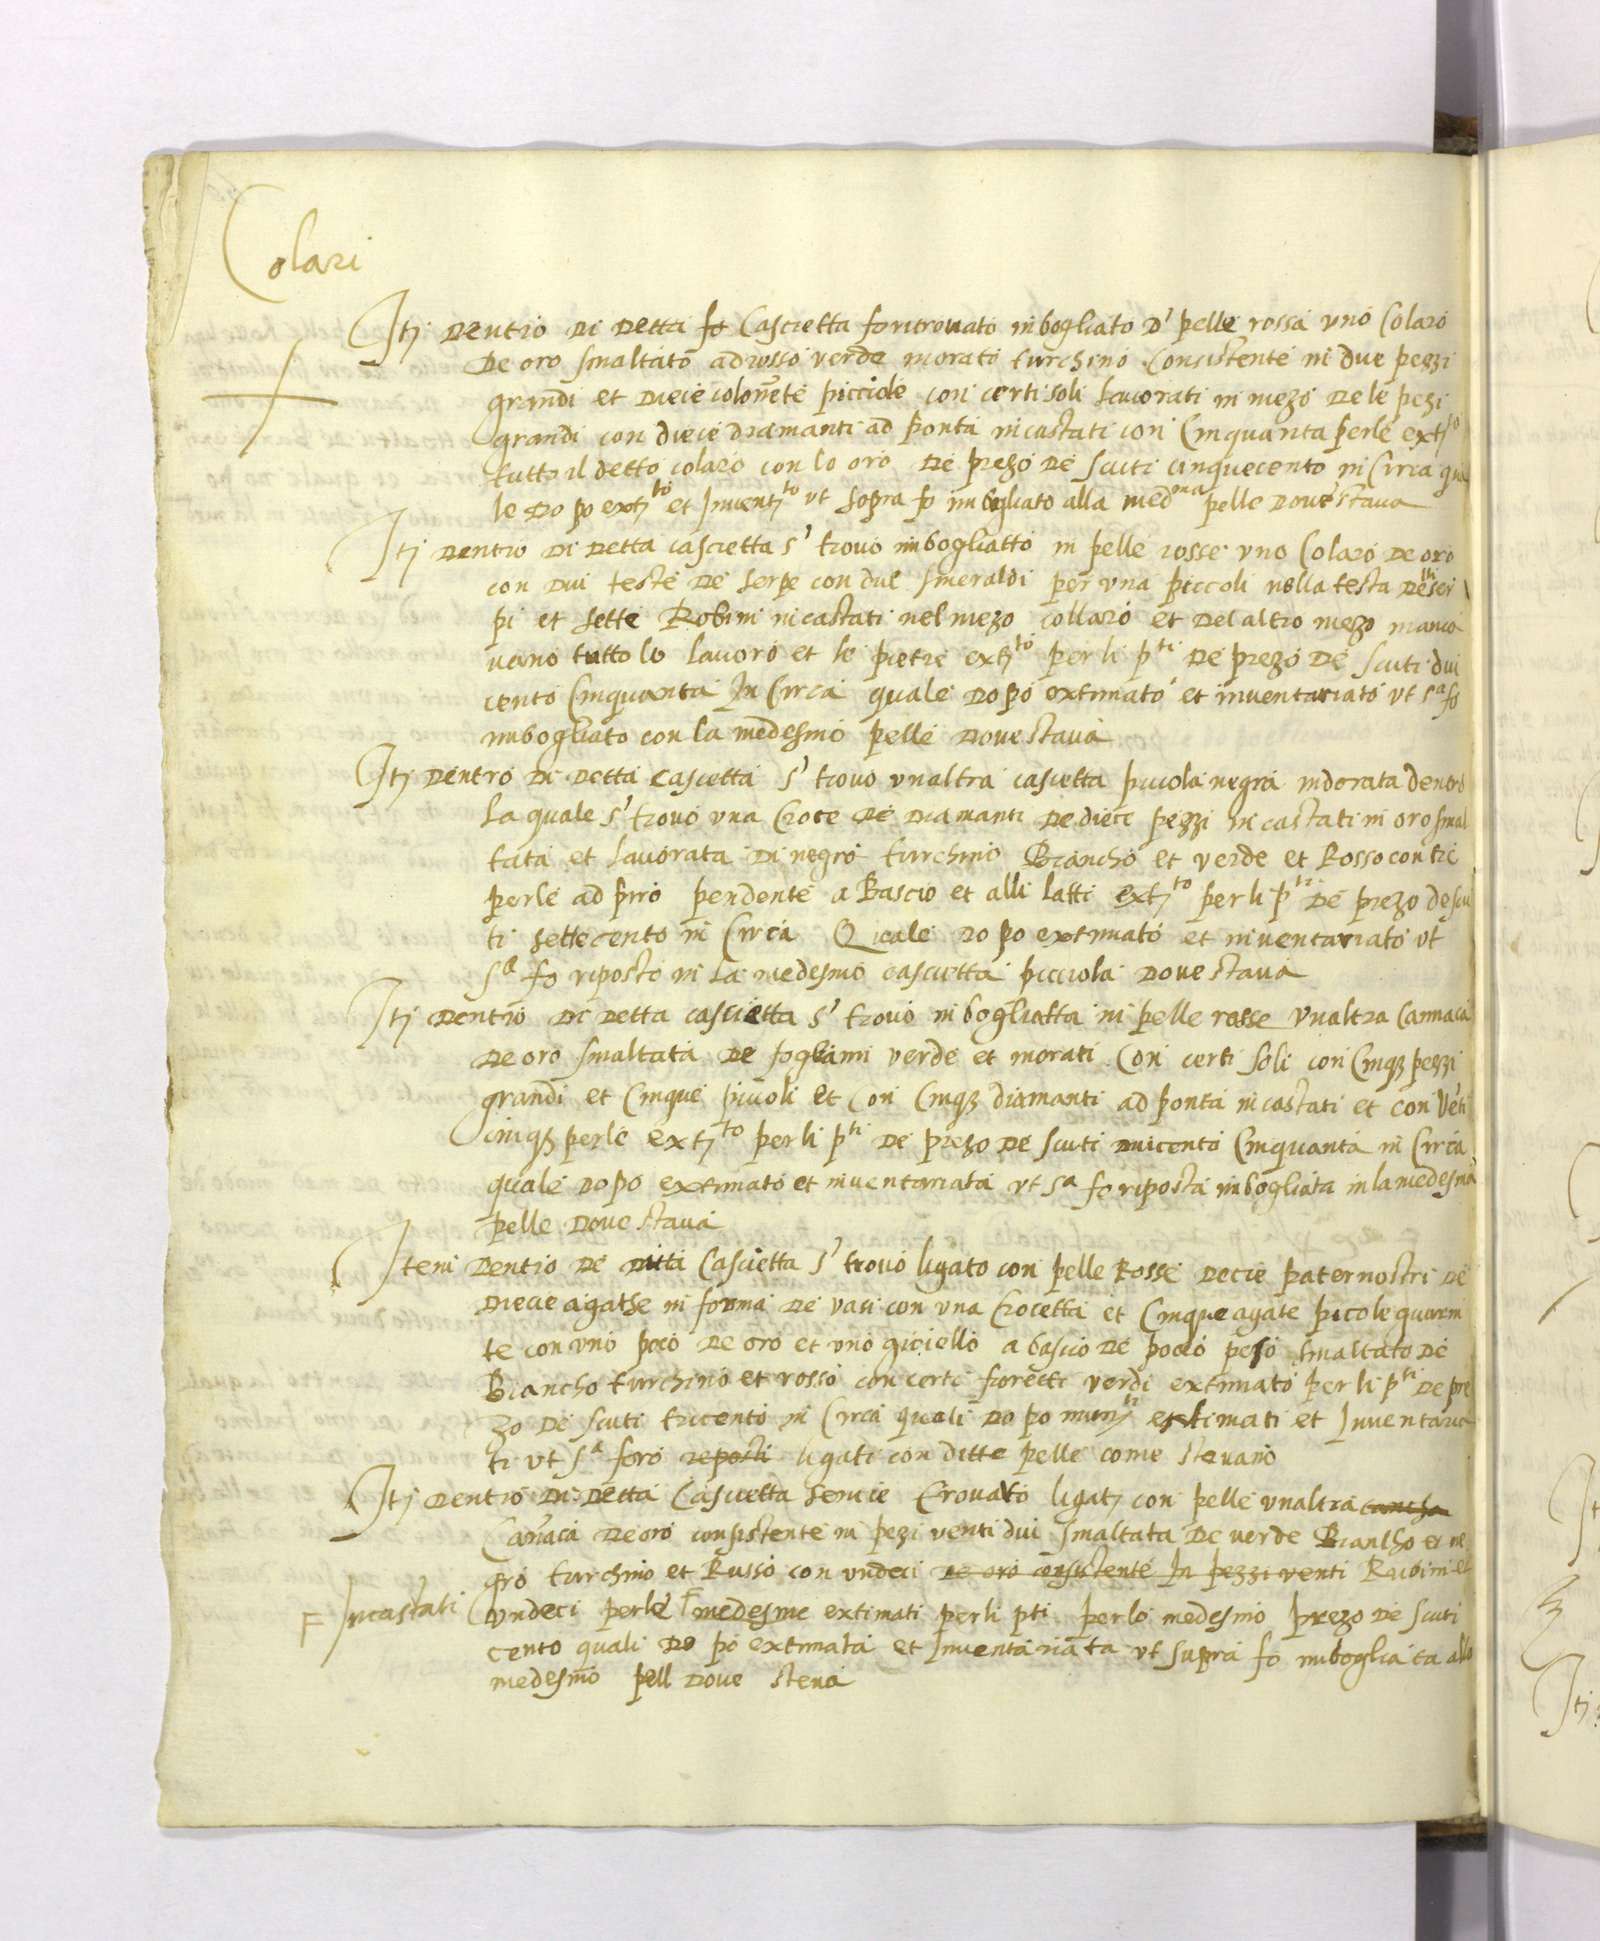 Colari
Itj dentro di detta fo Cascietta fo ritrouato inbogliato d' pelle rossa uno Colaro
de oro smaltato ad rosso verde morato turchino consistente in due pezzi
grandi et diece colonete picciole con certi soli lavorati in mezo de le pezi
grandi con diece diamanti ad ponta incastati con Cinquanta perle extj to
tutto il detto colaro con lo oro de prezo de scuti cinquecento in Circa qua
le do po extj to et Inventj to ut sopra fo imbogliato alla med ma pelle dove stava
Itj dentro di detta cascietta s' trovo imbogliatto in pelle rosse uno Colaro de oro
con dui teste de serpe con due smeraldi per una piccoli nella testa de li ser
pi et sette Robini incastati nel mezo collaro et del altro mezo manca
vano tutto lo lavoro et le pietre extj to per li p ti de prezo de scuti dui
cento Cinquanta In Circa quale dopo extimato et inventariato ut s a fo
imbogliato con la medesmo pelle dove stava
Itj dentro di detta cascietta s' trovo unaltra cascietta piccola negra indorata dentro
la quale s' trovo una Croce de diamanti de dieci pezzi in castati in oro smal
tata et lavorata di negro turchino Biancho et verde et Rosso con tre
perle ad pirio pendente a Bascio et alli latti extj to per li p ti de prezo de scu
ti settecento in Circa Quale do po extimato et inventariato ut
s a fo riposto in la medesmo cascietta picciola dove stava
Itj dentro di detta cascietta s' trovo inbogliatta in pelle rosse unaltra Cannaca
de oro smaltata de fogliami verde et morati Con certi soli con Cinqz pezzi
grandi et Cinque piccoli et Con Cinqz diamanti ad ponta incastati et con Veti
cinqz perle extj to per li p ti de prezo de scuti duicento Cinquanta in Circa
quale dopo extimato et inventariata ut s a fo riposta imbogliata in la medesma
pelle dove stava
Item dentro de ditta Cascietta s' trovo ligato con pelle Rosse decie paternostri de
diecie agathe in forma de vasi con una Crocetta et Cinque agate picole guarni
te con uno poco de oro et uno gioiello a bascio de poco peso smaltato de
Biancho turchino et rosso con certi fioretti verdi extimato per li p ti de pre
zo de scuti tricento in Circa quali do po estimati et Inventaria
ti ut s a foro reposti ligati con ditte pelle come stevano
Itj dentro di detta Cascietta se nci e trovato ligatj con pelle unaltra
Canaca de oro consistente in pezi venti dui smaltata de verde Biancho et ne
gro turchino et Russo con undeci de oro consistente In pezzi venti Rubini et
F Incastati undeci perle F medesme extimati per li pti per lo medesmo prezo de scuti
cento quali do po extimata et Inventariata ut supra fo imbogliata allo
medesmo pell dove steva